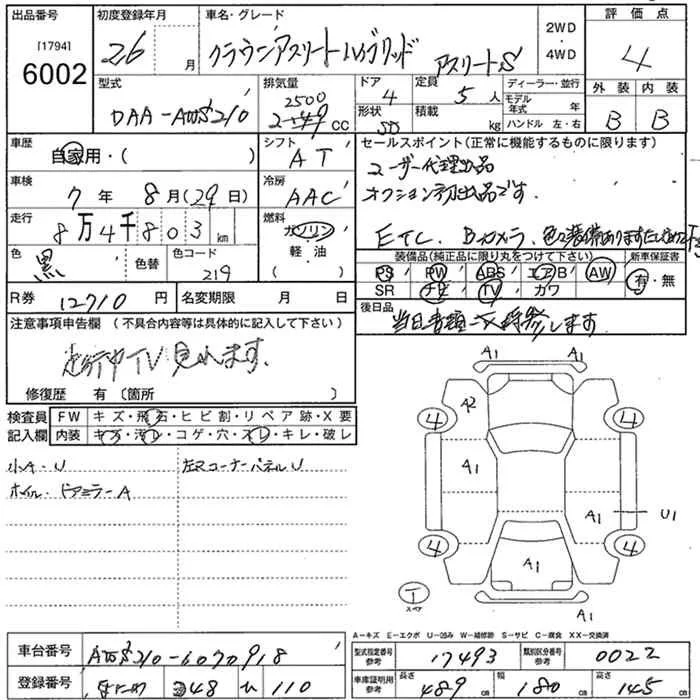 出品番号 初度登録年月 車名・グレード 2WD・4WD 評価点
[1794]
6002 26 月 クラウンアスリートハイブリッド アスリートS 4
型式 排気量 ドア 定員 ディーラー・並行 外装 内装
DAA-AWS210 2500 2549 CC 4 5人 モデル年式 年 B B
形状 SD 積載 kg ハンドル 左・右
車歴 自家用・( ) シフト AT セールスポイント(正常に機能するものに限ります)
ユーザー代理出品
車検 7年 8月(29日) 冷房 AAC オプション初出品です.
走行 8万4千803km 燃料 ガソリン・軽油 ETC. Bカメラ.
色 黒 色替 色コード 219 装備品(純正品に限り丸をつけて下さい) 新車保証書
PS PW ABS エアB AW 有・無
SR ナビ TV カワ
R券 12710円 名変期限 月 日 後日品
注意事項申告欄(不具合内容等は具体的に記入して下さい) 当日書類一式持参します
走行中TV見れます.
修復歴 有(箇所 )
検査員記入欄 FW キズ・飛石・ヒビ割・リペア跡・X要
内装 キズ・汚レ・コゲ・穴・スレ・キレ・破レ
小A・U 左Rコーナーパネル U
ホイル・ドアミラーA
A1 A1
A2
4 4
A1
A1 U1
4 4
A1
T スペア
A1
A-キズ E-エクボ U-凹み W-補修跡 S-サビ C-腐食 XX-交換済
車台番号 AWS210-6070918 型式指定番号参考 17493 類別区分番号参考 0022
登録番号 348 ひ 110 車庫証明用参考 長さ 489cm 幅 180cm 高さ 145cm